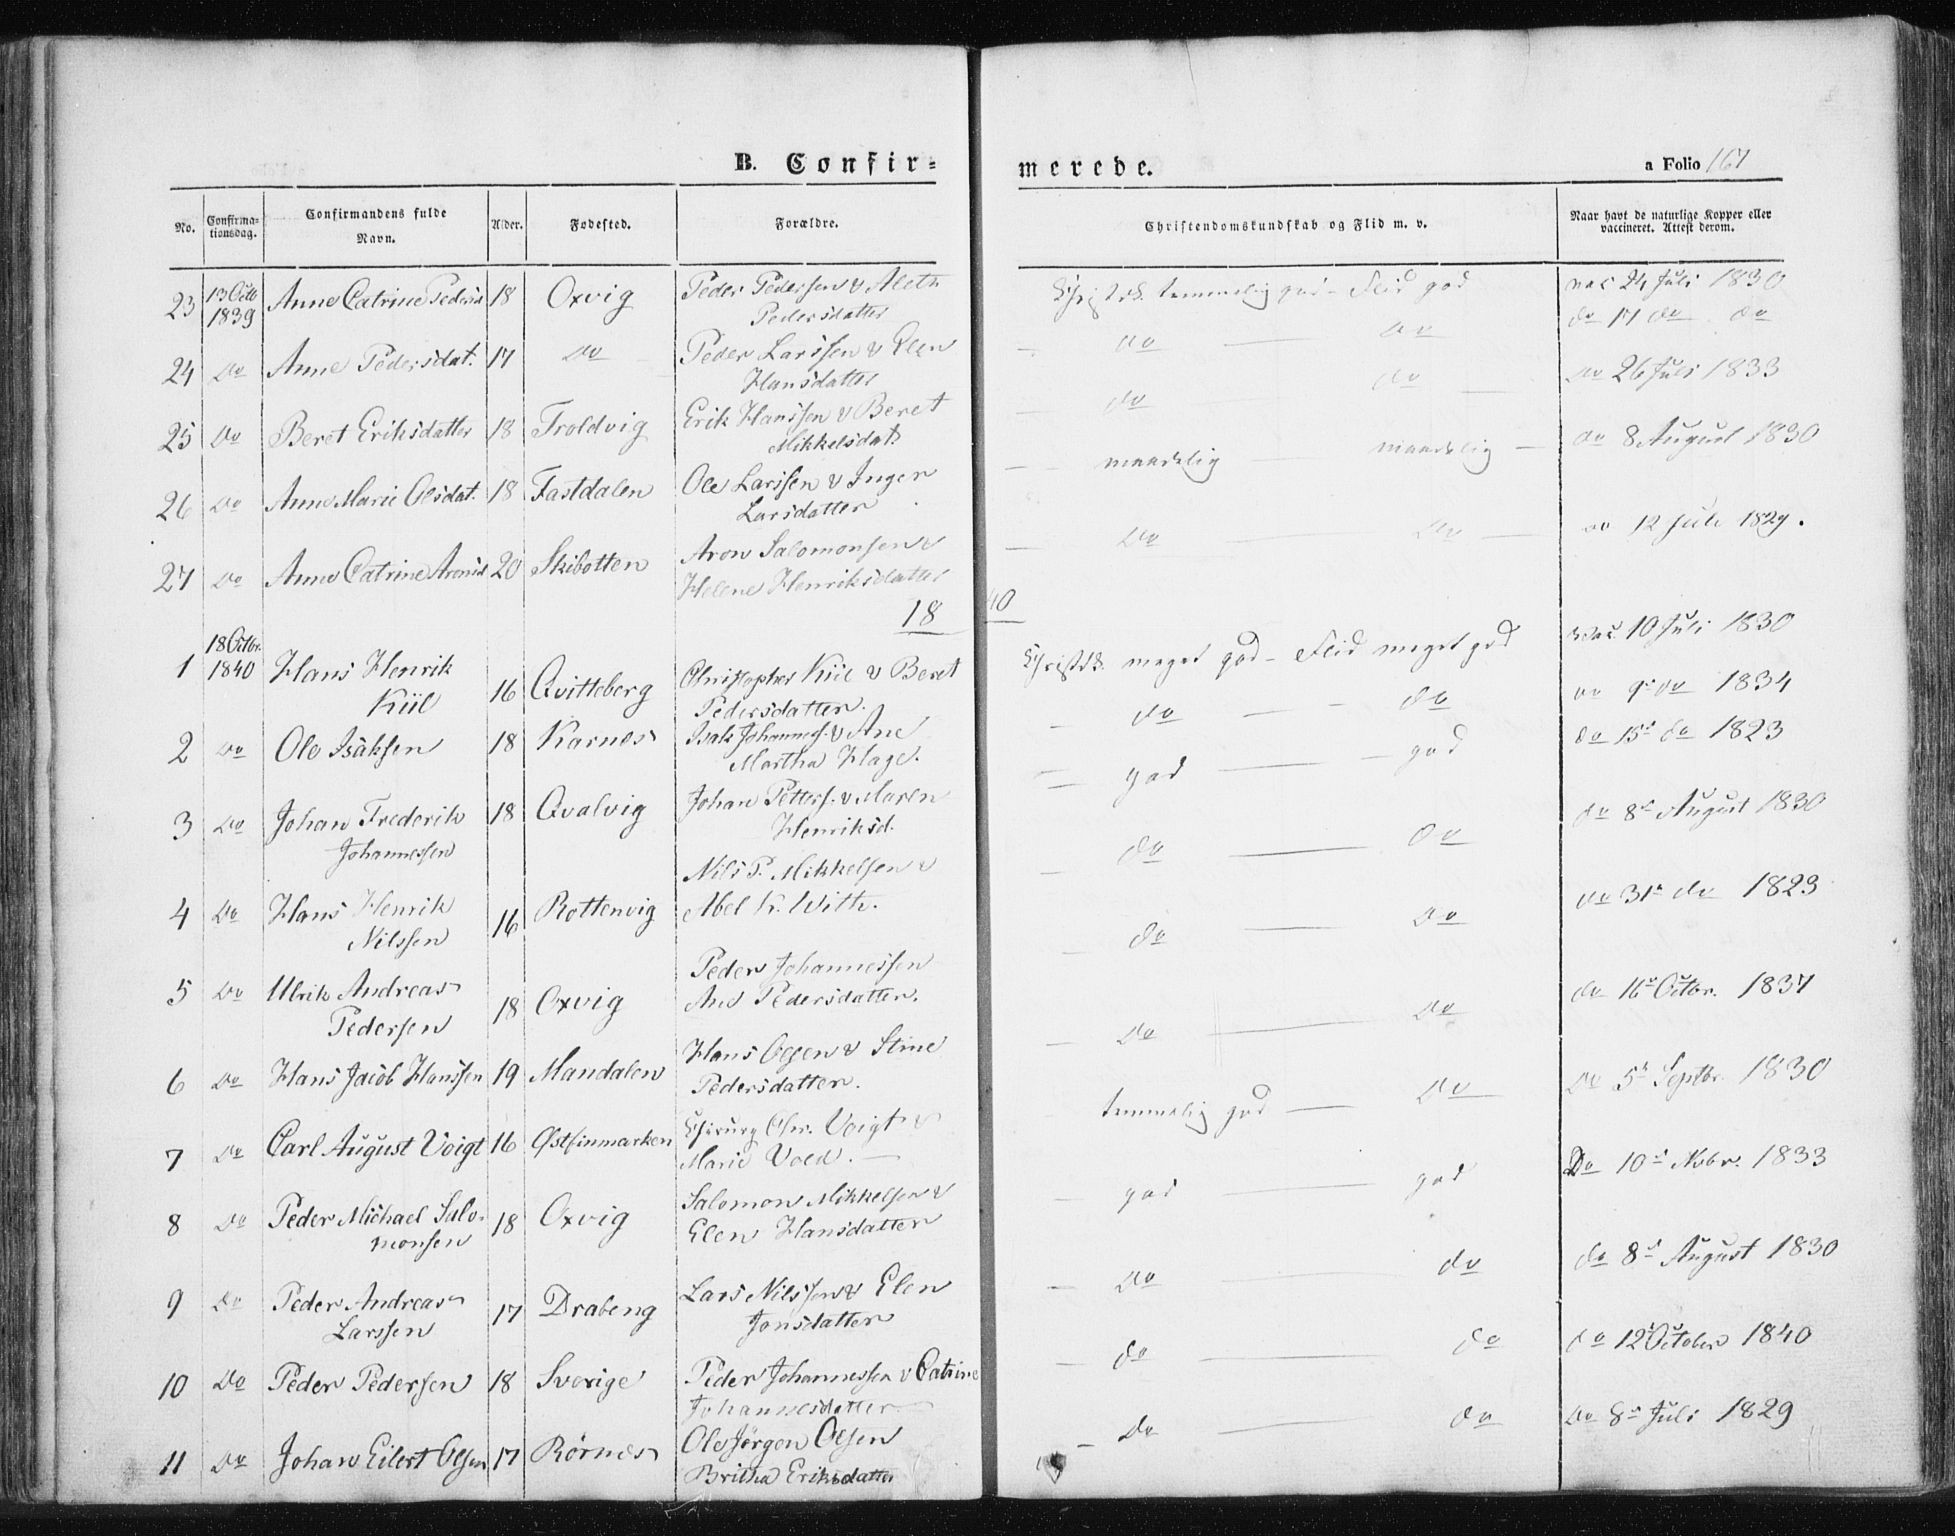 B. Confir=
merede.
a Folio 161
No.
Confirma-
tionsdag.
Confirmandens fulde
Navn.
Alder.
Fødested.
Forældre.
Christendomskundskab og Flid m. v.
Naar havt de naturlige Kopper eller
vaccineret. Attest derom.
23 13 Octb 1839 Anne Catrine Pedersd 18 Oxvig Peder Pedersen & Aleth
Pedersdatter
Christdk. temmelig god - Flid god vac 24 Juli 1830
24 Do Anne Pedersdat. 17 Do Peder Larssen & Elen
Hansdatter
— do — do do 17 do do
25 Do Beret Eriksdatter 18 Troldvig Erik Hanssen & Beret
Mikkelsdatt
— do — do — do 26 Juli 1833
26 Do Anne Marie Olsdat. 18 Fastdalen Ole Larssen & Inger
Larsdatter
— maadelig — maadelig — do 8 August 1830
27 Do Anne Catrine Aronsd 20 Skibotten Aron Salomonsen &
Helene Henriksdatter
— Do — Do — do 12 Juli 1829.
18 40
1 18 Octbr. 1840 Hans Henrik
Kiil 16 Qvitteberg Christopher Kiil & Beret
Pedersdatter.
Christdk. meget god - Flid meget god vac 10 Juli 1830
2 Do Ole Isaksen 18 Karnes Isak Johannes. & Ane
Martha Hage.
— do — do do 9de do 1834
3 Do Johan Frederik
Johannessen 18 Qvalvig Johan Petters. & Maren
Henriksd.
— god — god do 15de do 1823
4 Do Hans Henrik
Nilssen 16 Rottenvig Nils P. Mikkelsen &
Abel K. With.
— do — do do 8de August 1830
5 Do Ulrik Andreas
Pedersen 18 Oxvig Peder Johannessen
Ane Pedersdatter.
— do — do do 31te do 1823
6 Do Hans Jacob Hanssen 19 Mandalen Hans Olsen & Stine
Pedersdatter.
— Do — Do do 16de Octbr. 1837
7 Do Carl August Voigt 16 Østfinmarken Chirurg Chr. Voigt &
Marie Vold. —
temmelig god — Do Do 5te Septbr. 1830
8 Do Peder Michael Salo-
monsen 18 Oxvig Salomon Mikkelsen &
Elen Hansdatter
— god — god Do 10de Novbr. 1833
9 Do Peder Andreas
Larssen 17 Drabeng Lars Nilssen & Elen
Jonsdatter
— Do — do do 8de August 1830
10 Do Peder Pedersen 18 Sverige Peder Johannessen & Catrine
Johannesdatter
— do — do do 12 October 1840
11 Do Johan Eilert Olsen 17 Rørnes Ole Jørgen Olsen
Britha Eriksdatter
— Do — do Do 8de Juli 1829